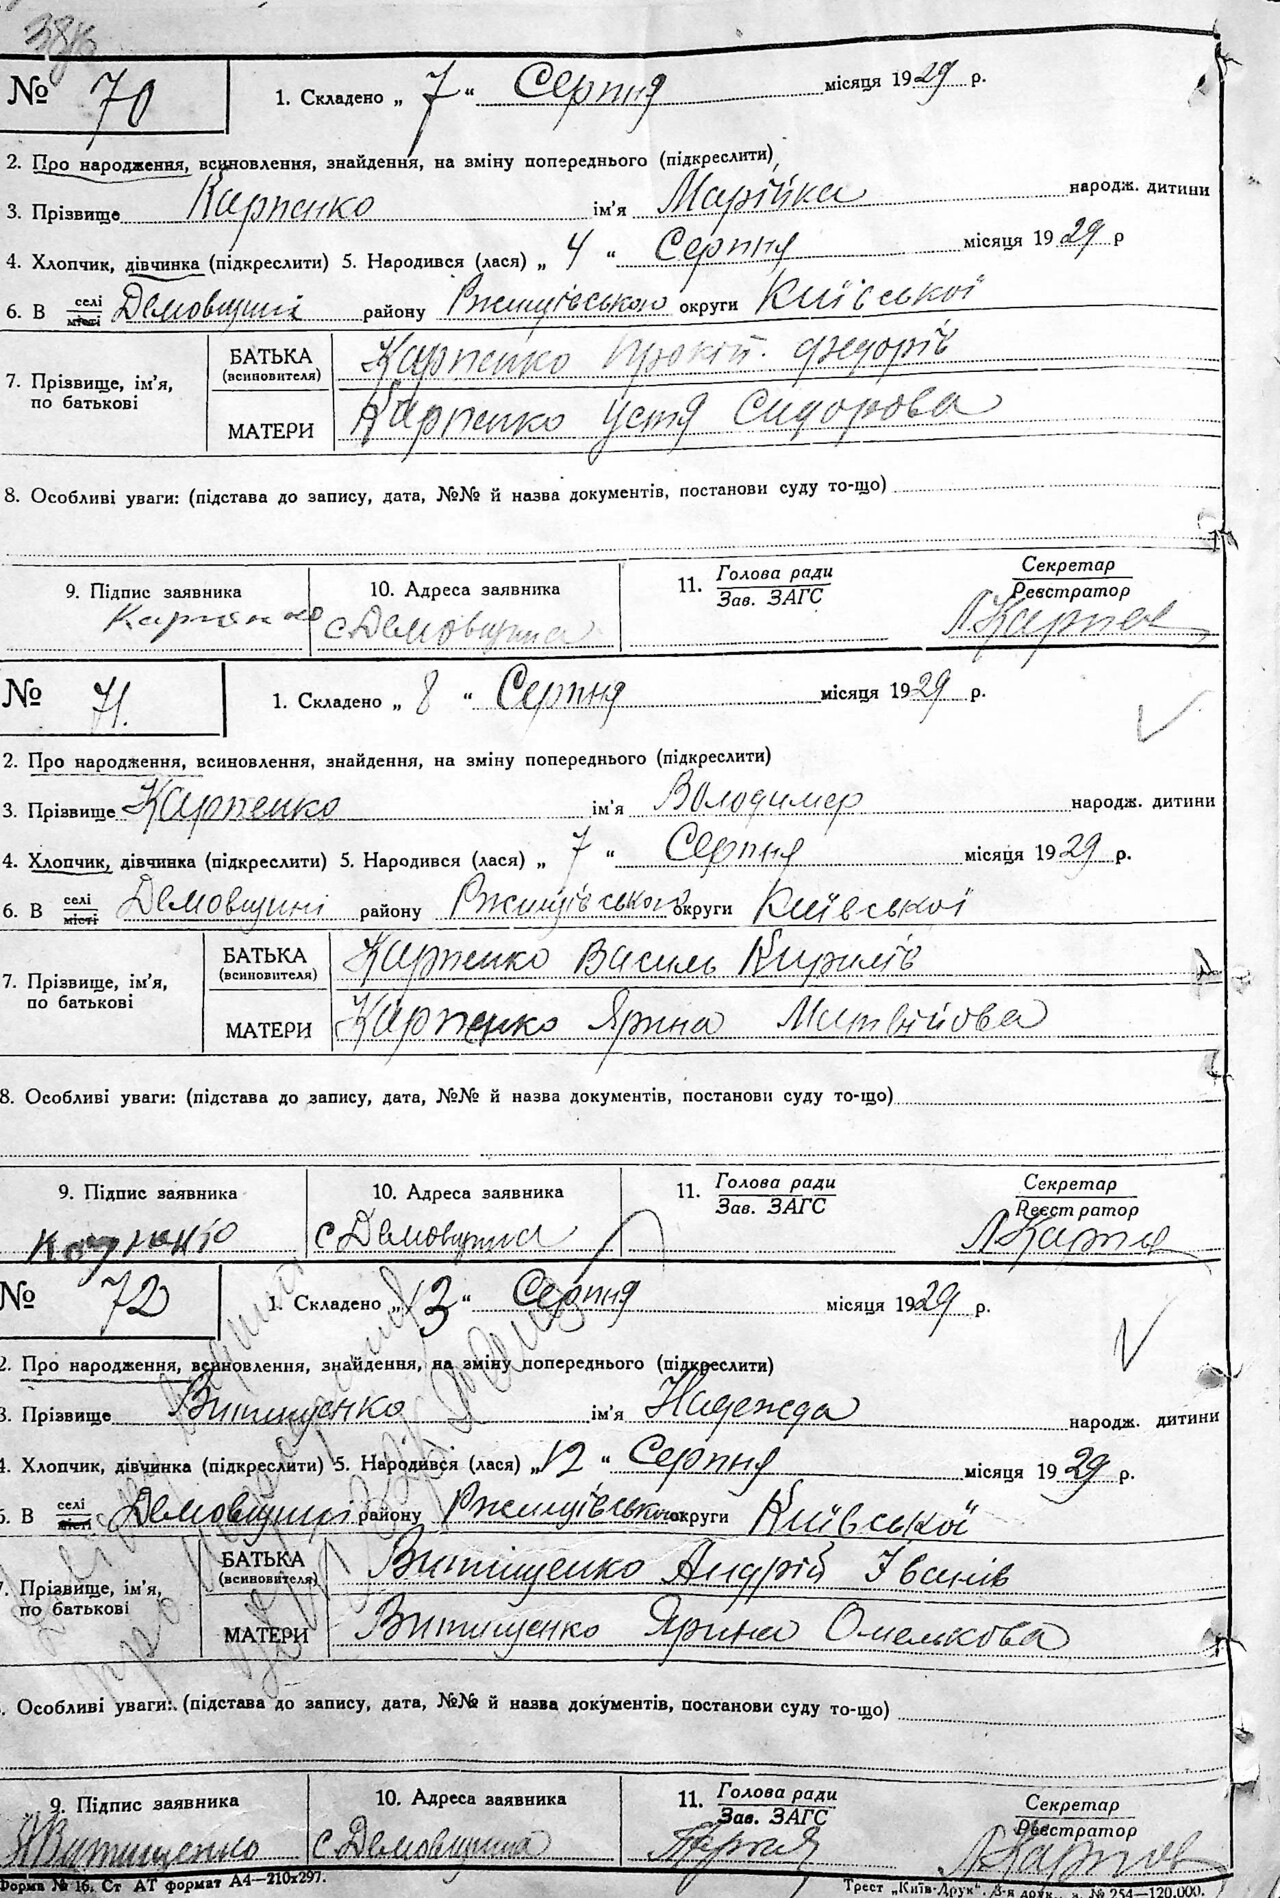 № 70
1. Складено „ 7 “ Серпня місяця 1929 р.
2. Про народження, всиновлення, знайдення, на зміну попереднього (підкреслити)
3. Прізвище Карпенко ім'я Марійка народж. дитини
4. Хлопчик, дівчинка (підкреслити) 5. Народився (лася) „ 4 “ Серпня місяця 1929 р
6. В селі місті Демовщині району Ржищівського округи Київської
7. Прізвище, ім'я, по батькові
БАТЬКА (всиновителя) Карпенко Прокіп. Федорів
МАТЕРИ Карпенко Устя Сидорова
8. Особливі уваги: (підстава до запису, дата, №№ й назва документів, постанови суду то-що)
9. Підпис заявника 10. Адреса заявника 11. Голова ради Зав. ЗАГС Секретар Реєстратор
Карпенко с Демовщина
№ 71.
1. Складено „ 8 “ Серпня місяця 1929 р.
2. Про народження, всиновлення, знайдення, на зміну попереднього (підкреслити)
3. Прізвище Карпенко ім'я Володимер народж. дитини
4. Хлопчик, дівчинка (підкреслити) 5. Народився (лася) „ 7 “ Серпня місяця 1929 р.
6. В селі місті Демовщині району Ржищівського округи Київської
7. Прізвище, ім'я, по батькові
БАТЬКА (всиновителя) Карпенко Василь Кирилів
МАТЕРИ Карпенко Ярина Матвійова
8. Особливі уваги: (підстава до запису, дата, №№ й назва документів, постанови суду то-що)
9. Підпис заявника 10. Адреса заявника 11. Голова ради Зав. ЗАГС Секретар Реєстратор
с Демовщина
№ 72
1. Складено „ 13 “ Серпня місяця 1929 р.
2. Про народження, всиновлення, знайдення, на зміну попереднього (підкреслити)
3. Прізвище Витищенко ім'я Надежда народж. дитини
4. Хлопчик, дівчинка (підкреслити) 5. Народився (лася) „ 12 “ Серпня місяця 1929 р.
6. В селі місті Демовщині району Ржищівського округи Київської
7. Прізвище, ім'я, по батькові
БАТЬКА (всиновителя) Витищенко Андрій Іванів
МАТЕРИ Витищенко Ярина Омелькова
Особливі уваги: (підстава до запису, дата, №№ й назва документів, постанови суду то-що)
9. Підпис заявника 10. Адреса заявника 11. Голова ради Зав. ЗАГС Секретар Реєстратор
Витищенко с Демовщина
Форма № 16. Ст АТ формат А4—210х297. Трест „Київ-Друк“. 3-я друк. № 254—120.000.